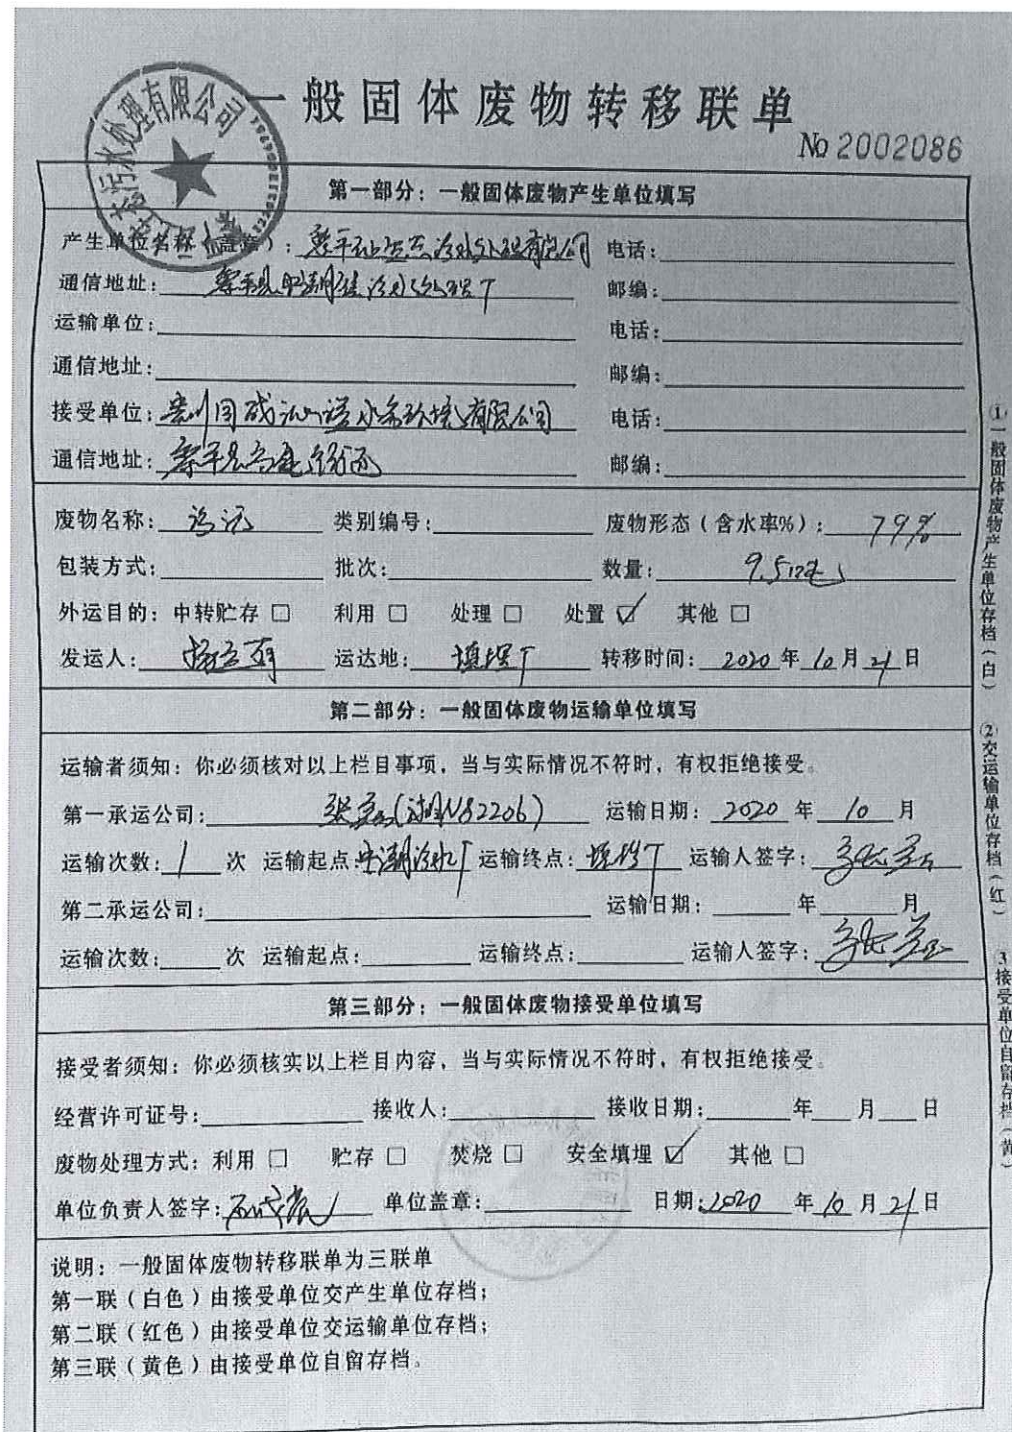 一般固体废物转移联单
污水处理有限公司
№ 2002086
第一部分：一般固体废物产生单位填写
产生单位名称（盖章）：黎平 污水处理有限公司 电话：
通信地址：黎平县中潮镇污水处理厂 邮编：
运输单位： 电话：
通信地址： 邮编：
接受单位：贵州 水务环境有限公司 电话：
通信地址：黎平县 邮编：
废物名称：污泥 类别编号： 废物形态（含水率%）：79%
包装方式： 批次： 数量：9.512吨
外运目的：中转贮存 □ 利用 □ 处理 □ 处置 ☑ 其他 □
发运人： 运达地：填埋厂 转移时间：2020 年 10 月 21 日
第二部分：一般固体废物运输单位填写
运输者须知：你必须核对以上栏目事项，当与实际情况不符时，有权拒绝接受。
第一承运公司：张 (湘N82206) 运输日期：2020 年 10 月
运输次数：1 次 运输起点：中潮污水厂 运输终点：填埋厂 运输人签字：
第二承运公司： 运输日期： 年 月
运输次数： 次 运输起点： 运输终点： 运输人签字：
第三部分：一般固体废物接受单位填写
接受者须知：你必须核实以上栏目内容，当与实际情况不符时，有权拒绝接受。
经营许可证号： 接收人： 接收日期： 年 月 日
废物处理方式：利用 □ 贮存 □ 焚烧 □ 安全填埋 ☑ 其他 □
单位负责人签字： 单位盖章： 日期：2020 年 10 月 21 日
说明：一般固体废物转移联单为三联单
第一联（白色）由接受单位交产生单位存档；
第二联（红色）由接受单位交运输单位存档；
第三联（黄色）由接受单位自留存档。
①一般固体废物产生单位存档（白）
②交运输单位存档（红）
3接受单位自留存档（黄）